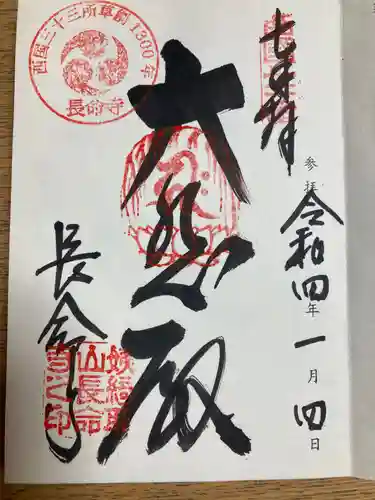 参拝
令和四年一月四日
大悲殿
長命寺
西國三十三所草創1300年
長命寺
姨綺耶
山長命
寺之印